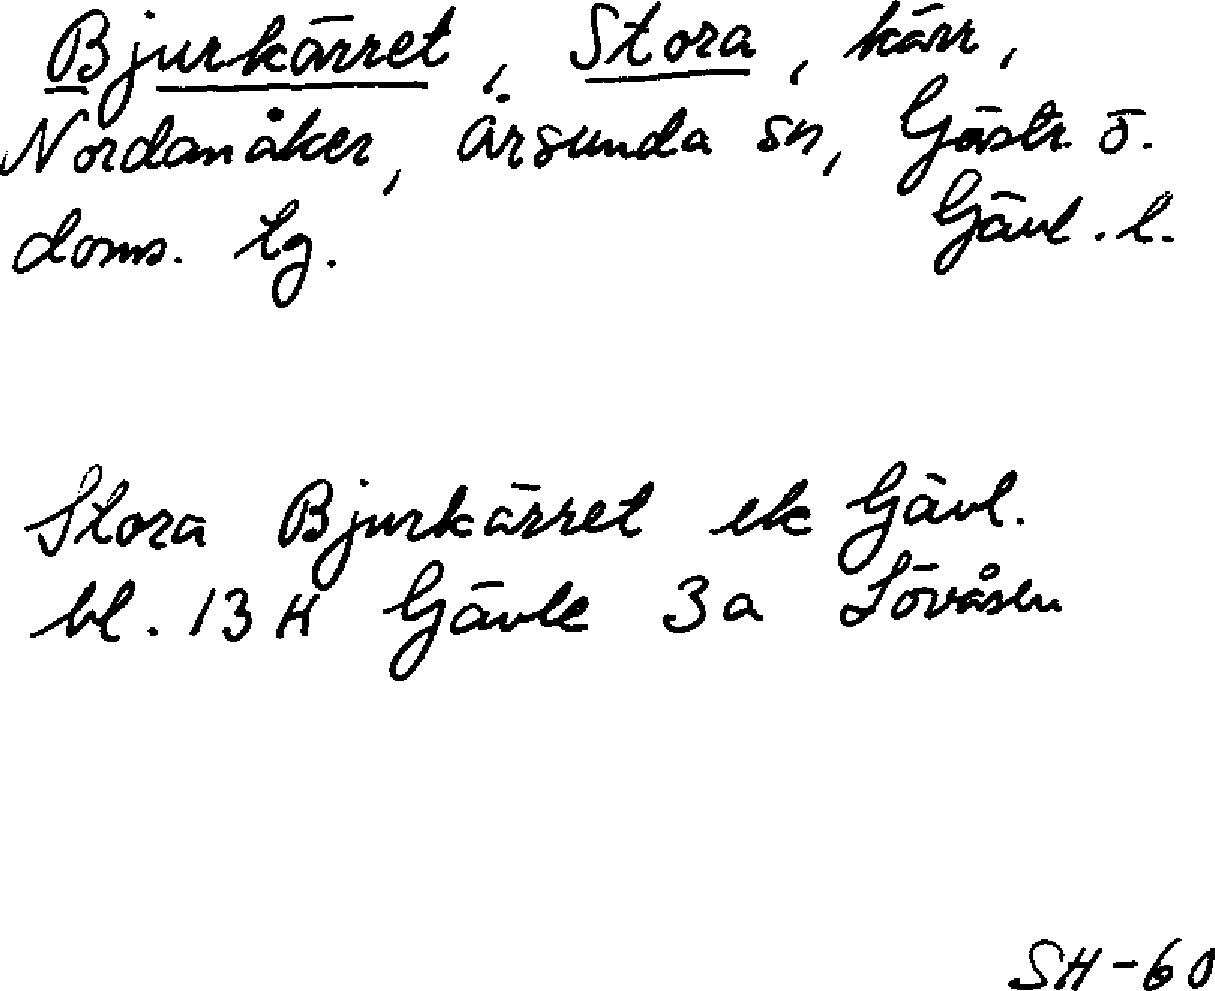 Bjurkärret, Stora, kärr,
Nordanåker, Årsunda sn, Gästr. ö.
doms. tg. Gävl. l.
Stora Bjurkärret ek Gävl.
bl. 13 H Gävle 3a Lövåsen
SH-60